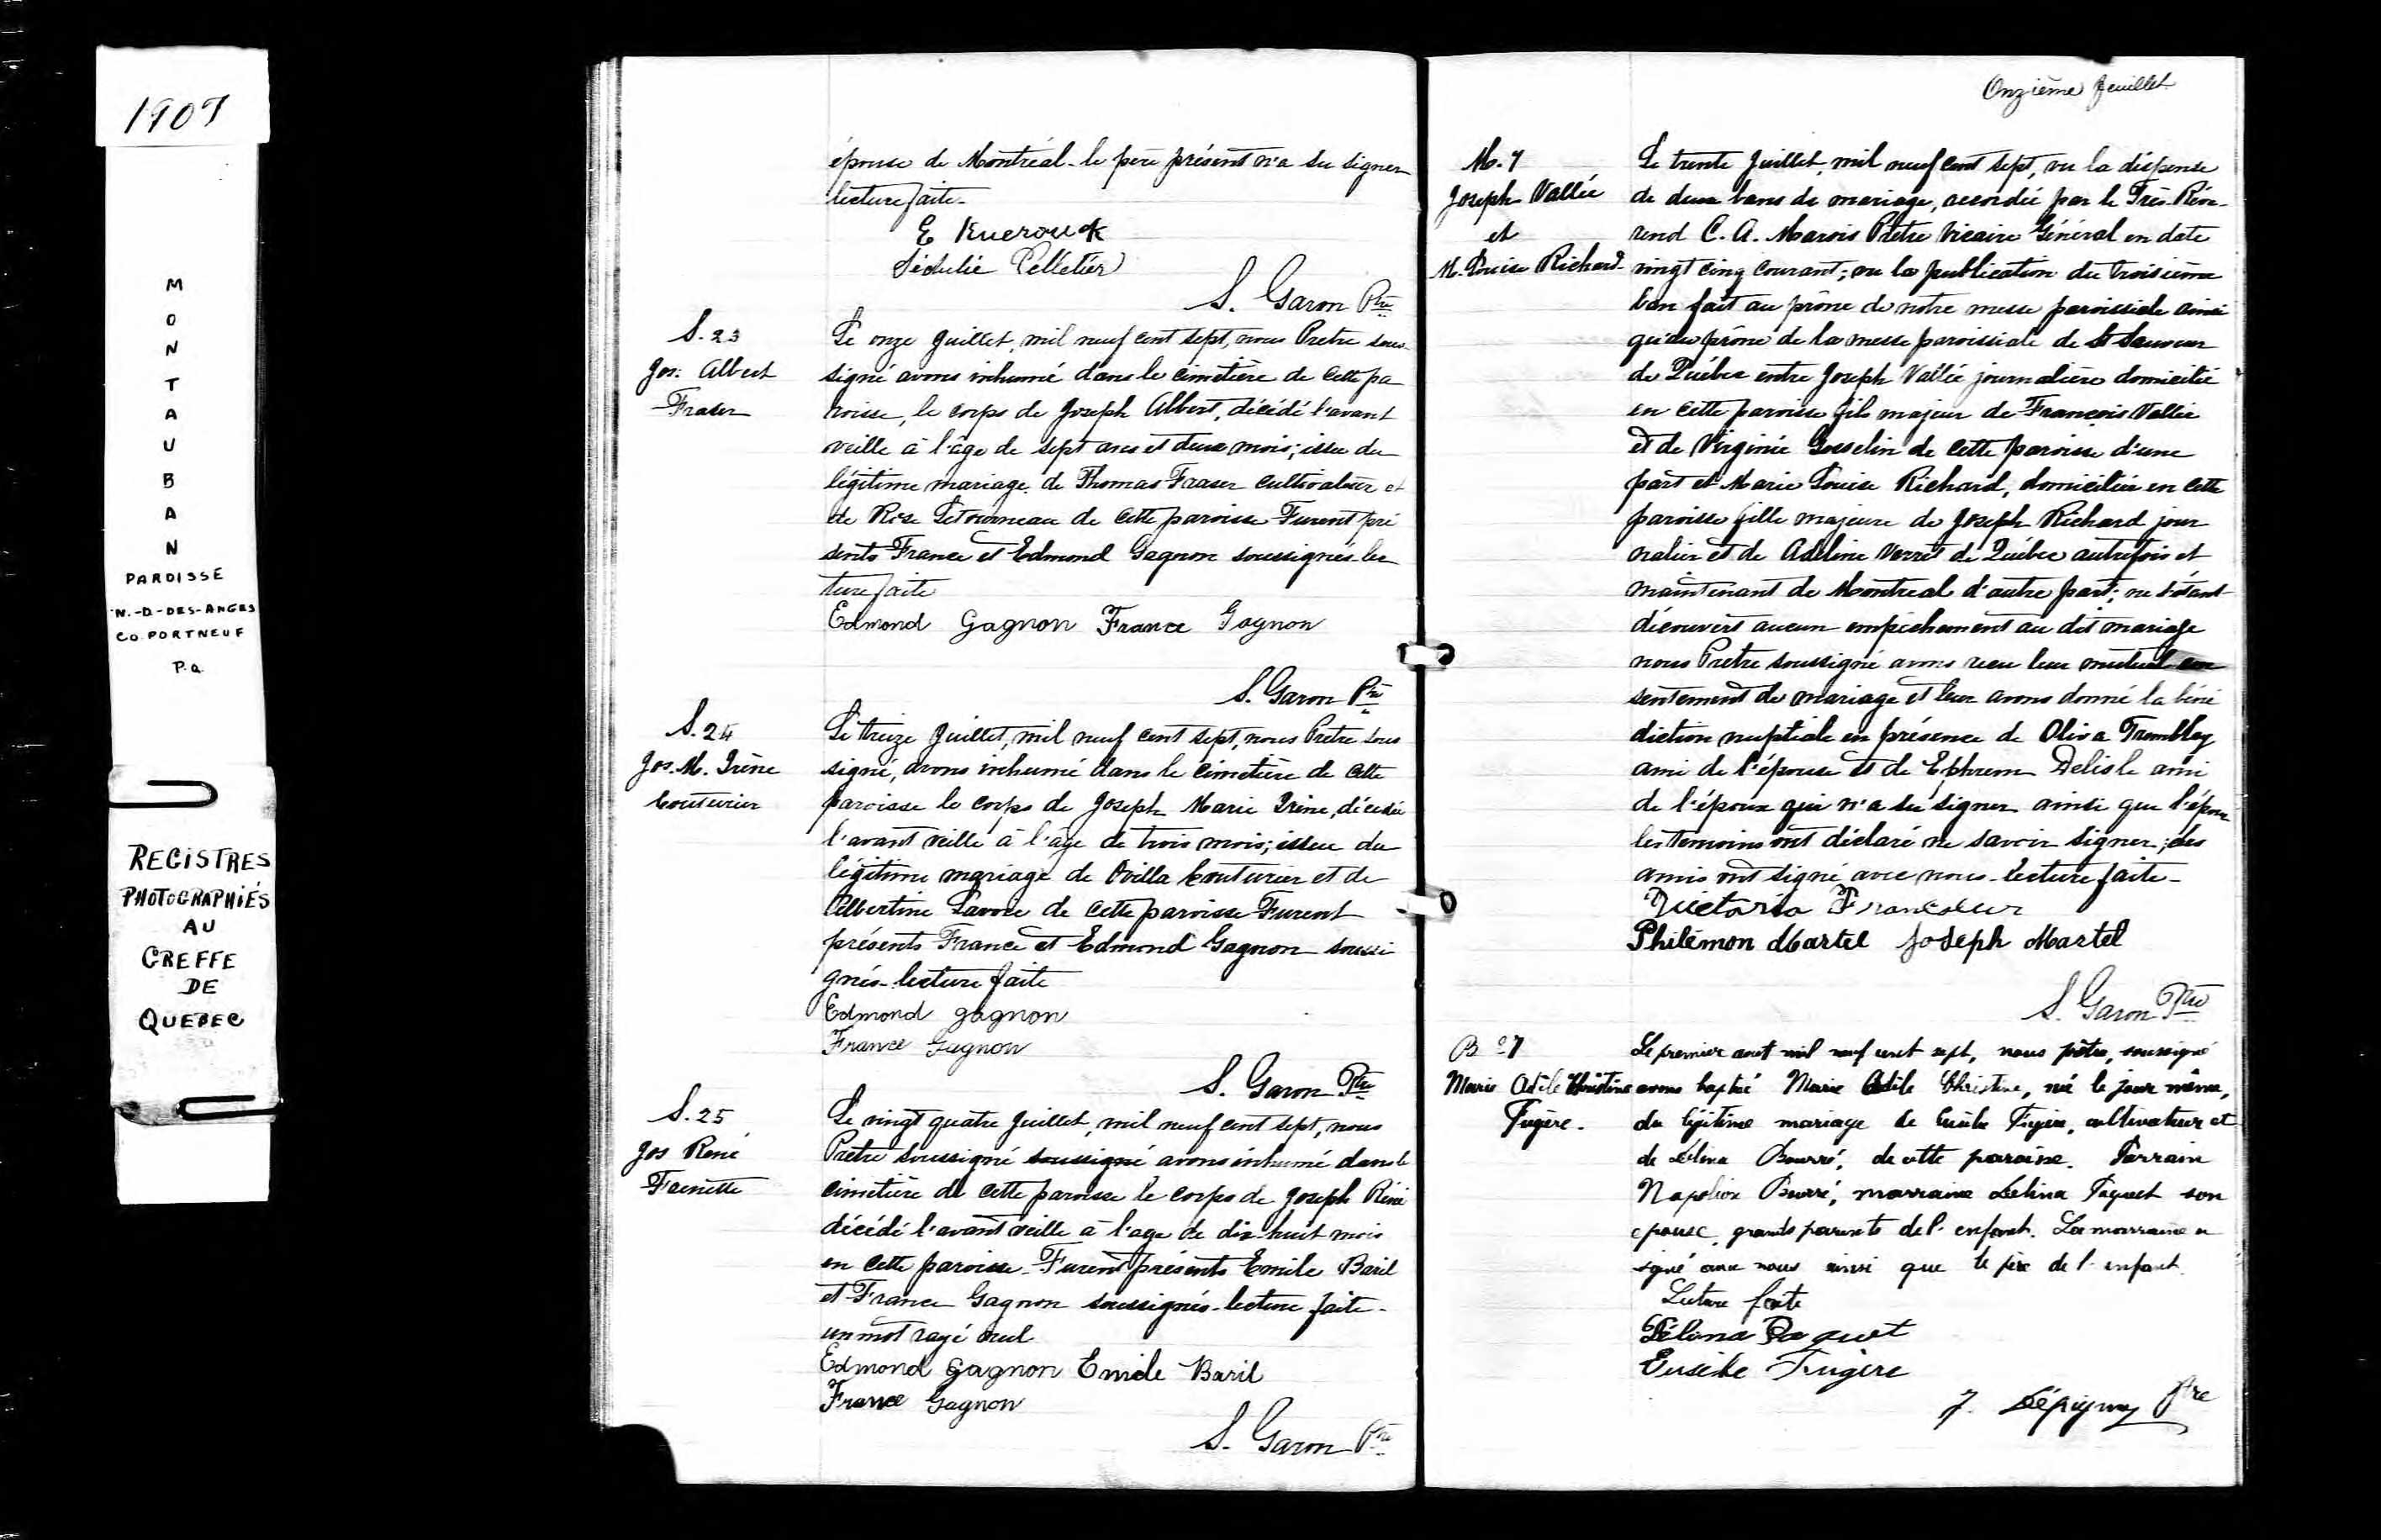 1907
M
O
N
T
A
U
B
A
N
PAROISSE
N.-D-DES-ANGES
CO. PORTNEUF
P.Q.
REGISTRES
PHOTOGRAPHIÉS
AU
GREFFE
DE
QUEBEC
épouse de Montréal - le père présent n'a su signer
lecture faite -
E
Sédulie Pelletier
S. Garon Ptre
S. 23
Jos. Albert
Fraser
Le onze Juillet, mil neuf cent sept, nous Pretre sous
signé avons inhumé dans le cimetière de cette pa
roisse, le corps de Joseph Albert, décédé l'avant
veille à l'âge de sept ans et deux mois; issu du
légitime mariage de Thomas Fraser cultivateur et
de Rose Letourneau de cette paroisse Furent pré
sents France et Edmond Gagnon soussignés - lec
ture faite
Edmond Gagnon France Gagnon
S. Garon Ptre
S. 24
Jos. M. Irène
Couturier
Le treize Juillet, mil neuf cent sept, nous Pretre sous
signé, avons inhumé dans le cimetière de cette
paroisse le corps de Joseph Marie Irène, décédée
l'avant veille à l'âge de trois mois; issue du
légitime mariage de Ovilla Couturier et de
Albertine Lavoie de cette paroisse Furent
présents France et Edmond Gagnon soussi
gnés - lecture faite
Edmond gagnon
France Gagnon
S. Garon Ptre
S. 25
Jos René
Le vingt quatre Juillet, mil neuf cent sept, nous
Pretre soussigné soussigné avons inhumé dans le
cimetière de cette paroisse le corps de Joseph René
décédé l'avant veille à l'age de dix-huit mois
en cette paroisse - Furent présents Emile Baril
et France Gagnon soussignés - lecture faite -
un mot rayé nul
Edmond gagnon Emile Baril
France Gagnon
S. Garon Ptre
Onzième feuillet
M. 7
Joseph Vallée
et
M. Louise Richard
Le trente Juillet, mil neuf cent sept, vu la dispense
de deux bans de mariage, accordée par le Très Révé-
rend C. A. Marois Prêtre Vicaire Général en date
vingt cinq courant; vu la publication du troisième
ban fait au prône de notre messe paroissiale ainsi
qu'au prône de la messe paroissiale de St Sauveur
de Québec entre Joseph Vallée journalière domicilié
en cette paroisse fils majeur de François Vallée
et de Virginie Gosselin de cette paroisse d'une
part et Marie Louise Richard, domiciliée en cette
paroisse fille majeure de Joseph Richard jour
nalier et de Adeline Verret de Québec autrefois et
maintenant de Montreal d'autre part; ne s'étant
découvert aucun empêchement au dit mariage
nous Pretre soussigné avons reçu leur mutuel con
sentement de mariage et leur avons donné la béné
diction nuptiale en présence de Oliva Tremblay
ami de l'épouse et de Ephrem Delisle ami
de l'époux qui n'a su signer ainsi que l'épouse
les temoins ont déclaré ne savoir signer; des
amis ont signé avec nous - lecture faite -
Victoria Francoeur
Philémon Martel Joseph Martel
S. Garon Ptre
Marie Adèle Christine
Fugère.
Le premier aout mil neuf cent sept, nous prêtre, soussigné
avons baptisé Marie Adèle Christine, né le jour même,
du légitime mariage de Eusèbe Fugère, cultivateur et
de Bourré, de cette paroisse. Parrain
Napoléon Bourré, marraine Délina Paquet son
epouse, grands parents de l'enfant. La marraine a
signé avec nous ainsi que le père de l'enfant
Lecture faite
Délina Paquet
Eusèbe Frugère
J. Lépigny Ptre